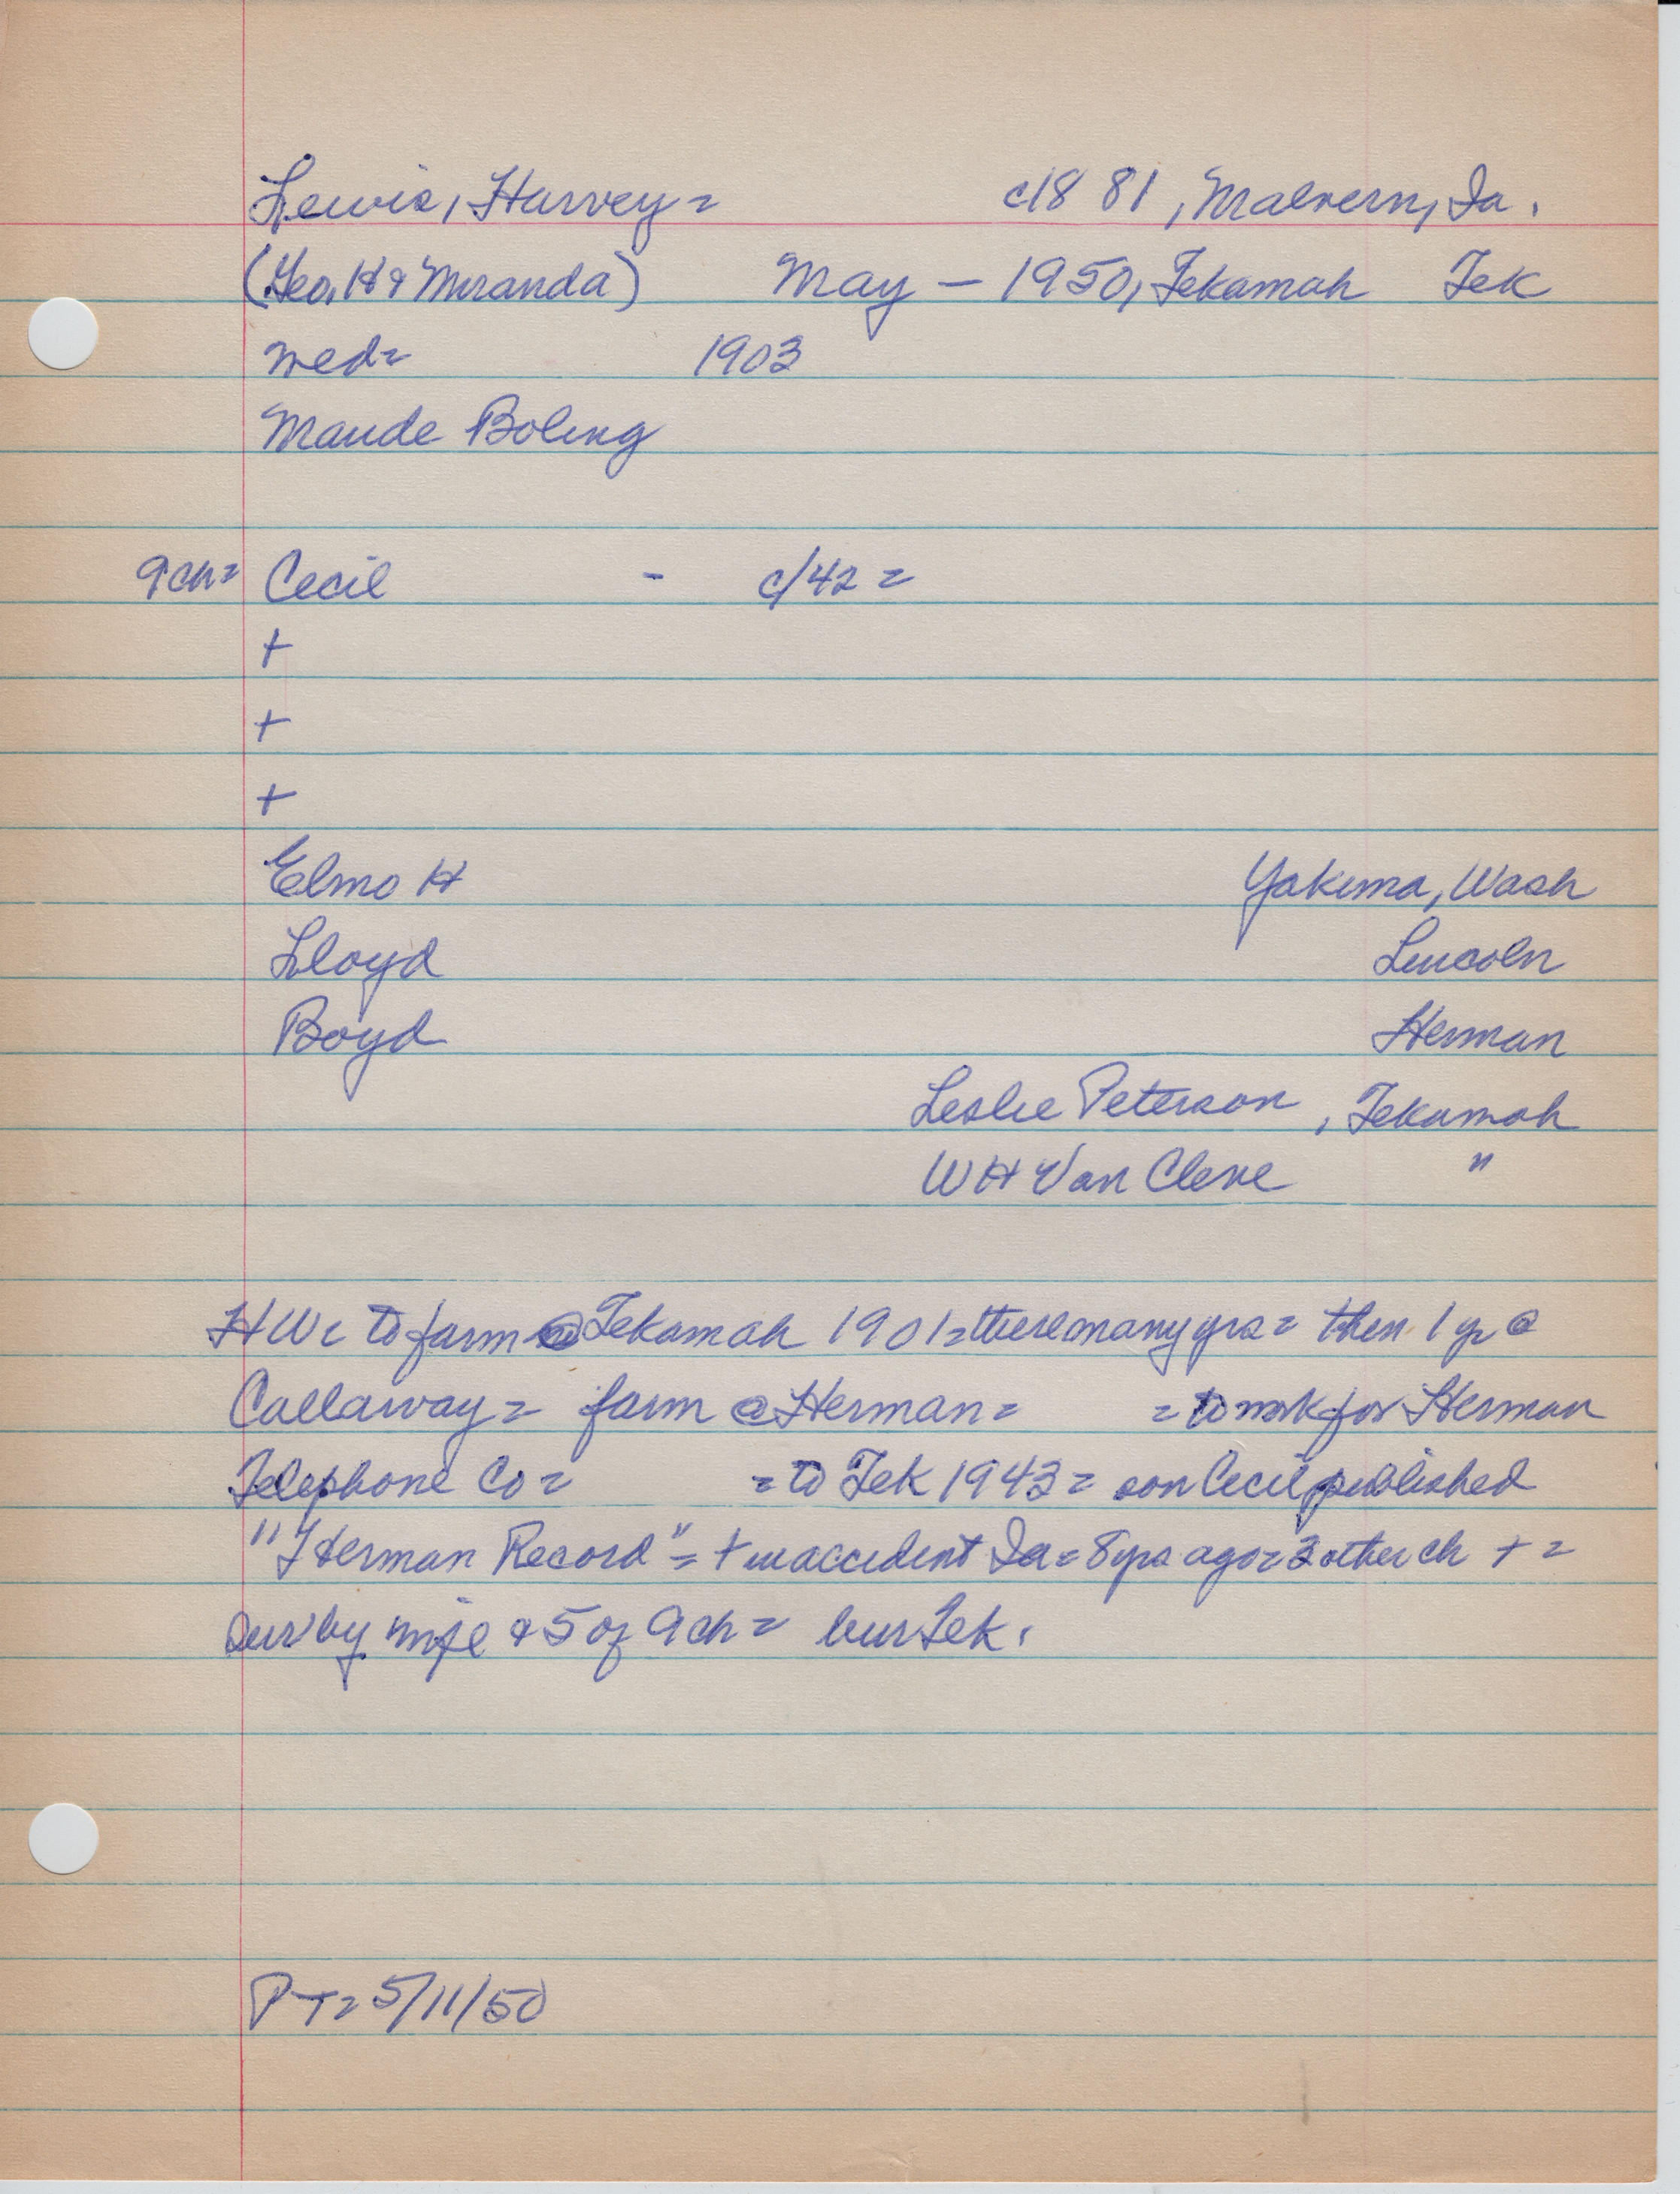 Lewis, Harvey = c1881, Malvern, Ia.
(Geo. H & Miranda) May — 1950, Tekamah Tek
wed = 1903
Maude Boling
9 ch = Cecil - c/42 =
+
+
+
Elmo H Yakima, Wash
Lloyd Lincoln
Boyd Herman
Leslie Peterson, Tekamah
WH Van Cleve "
HW = to farm @ Tekamah 1901 = there many yrs = then 1 yr @
Callaway = farm @ Herman = = to work for Herman
Telephone Co = = to Tek 1943 = son Cecil published
"Herman Record" = + in accident Ia = 8 yrs ago = 3 other ch + =
surv by wife & 5 of 9 ch = bur Tek.
PT = 5/11/50